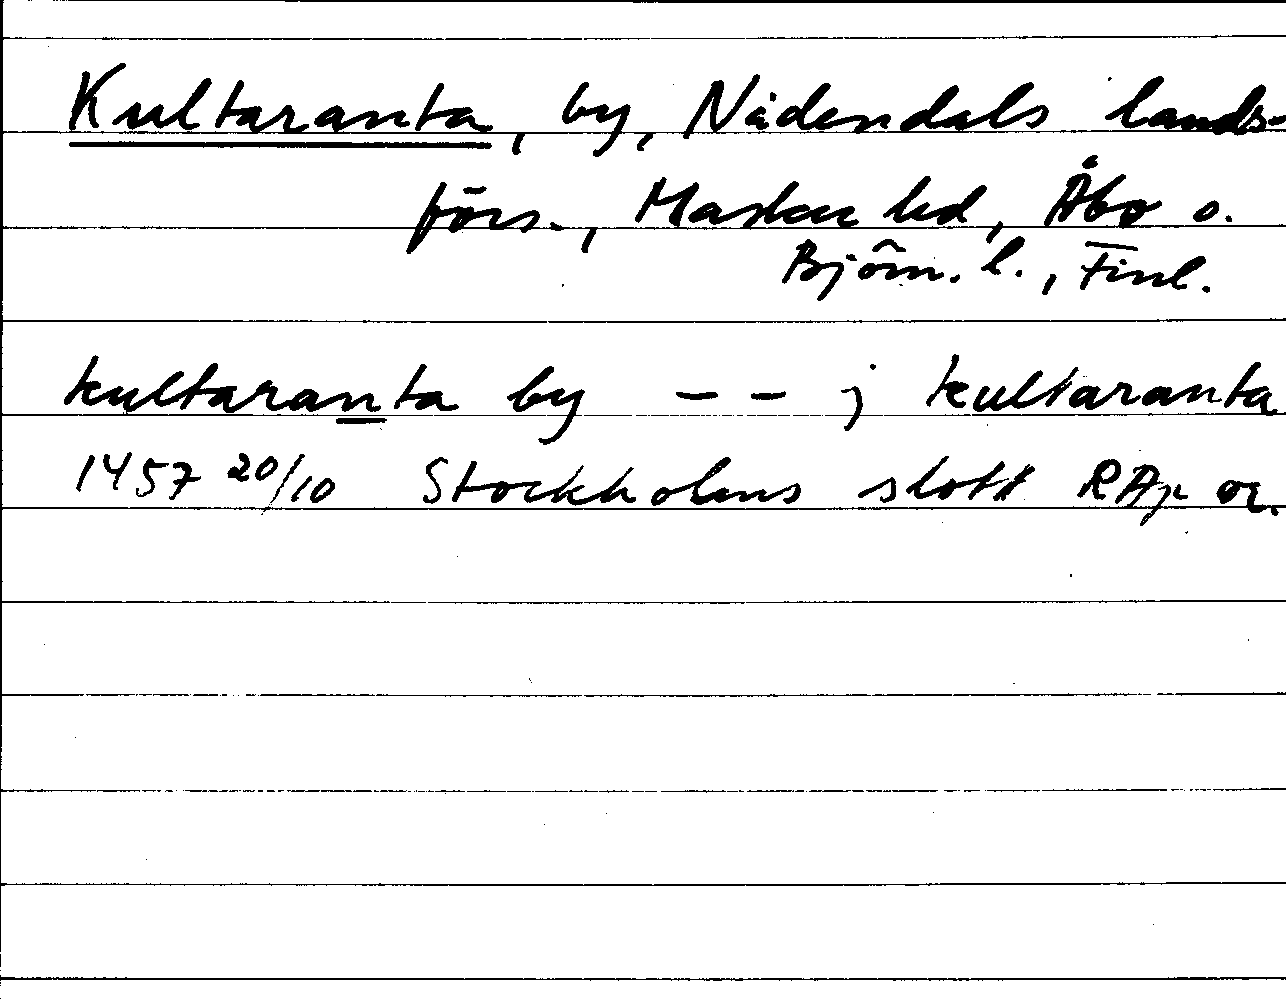 Kultaranta, by, Nådendals lands-
förs., Masku hd, Åbo o.
Björn. l., Finl.
kultaranta by - - j kultaranta
1457 20/10 Stockholms slott RAp or.